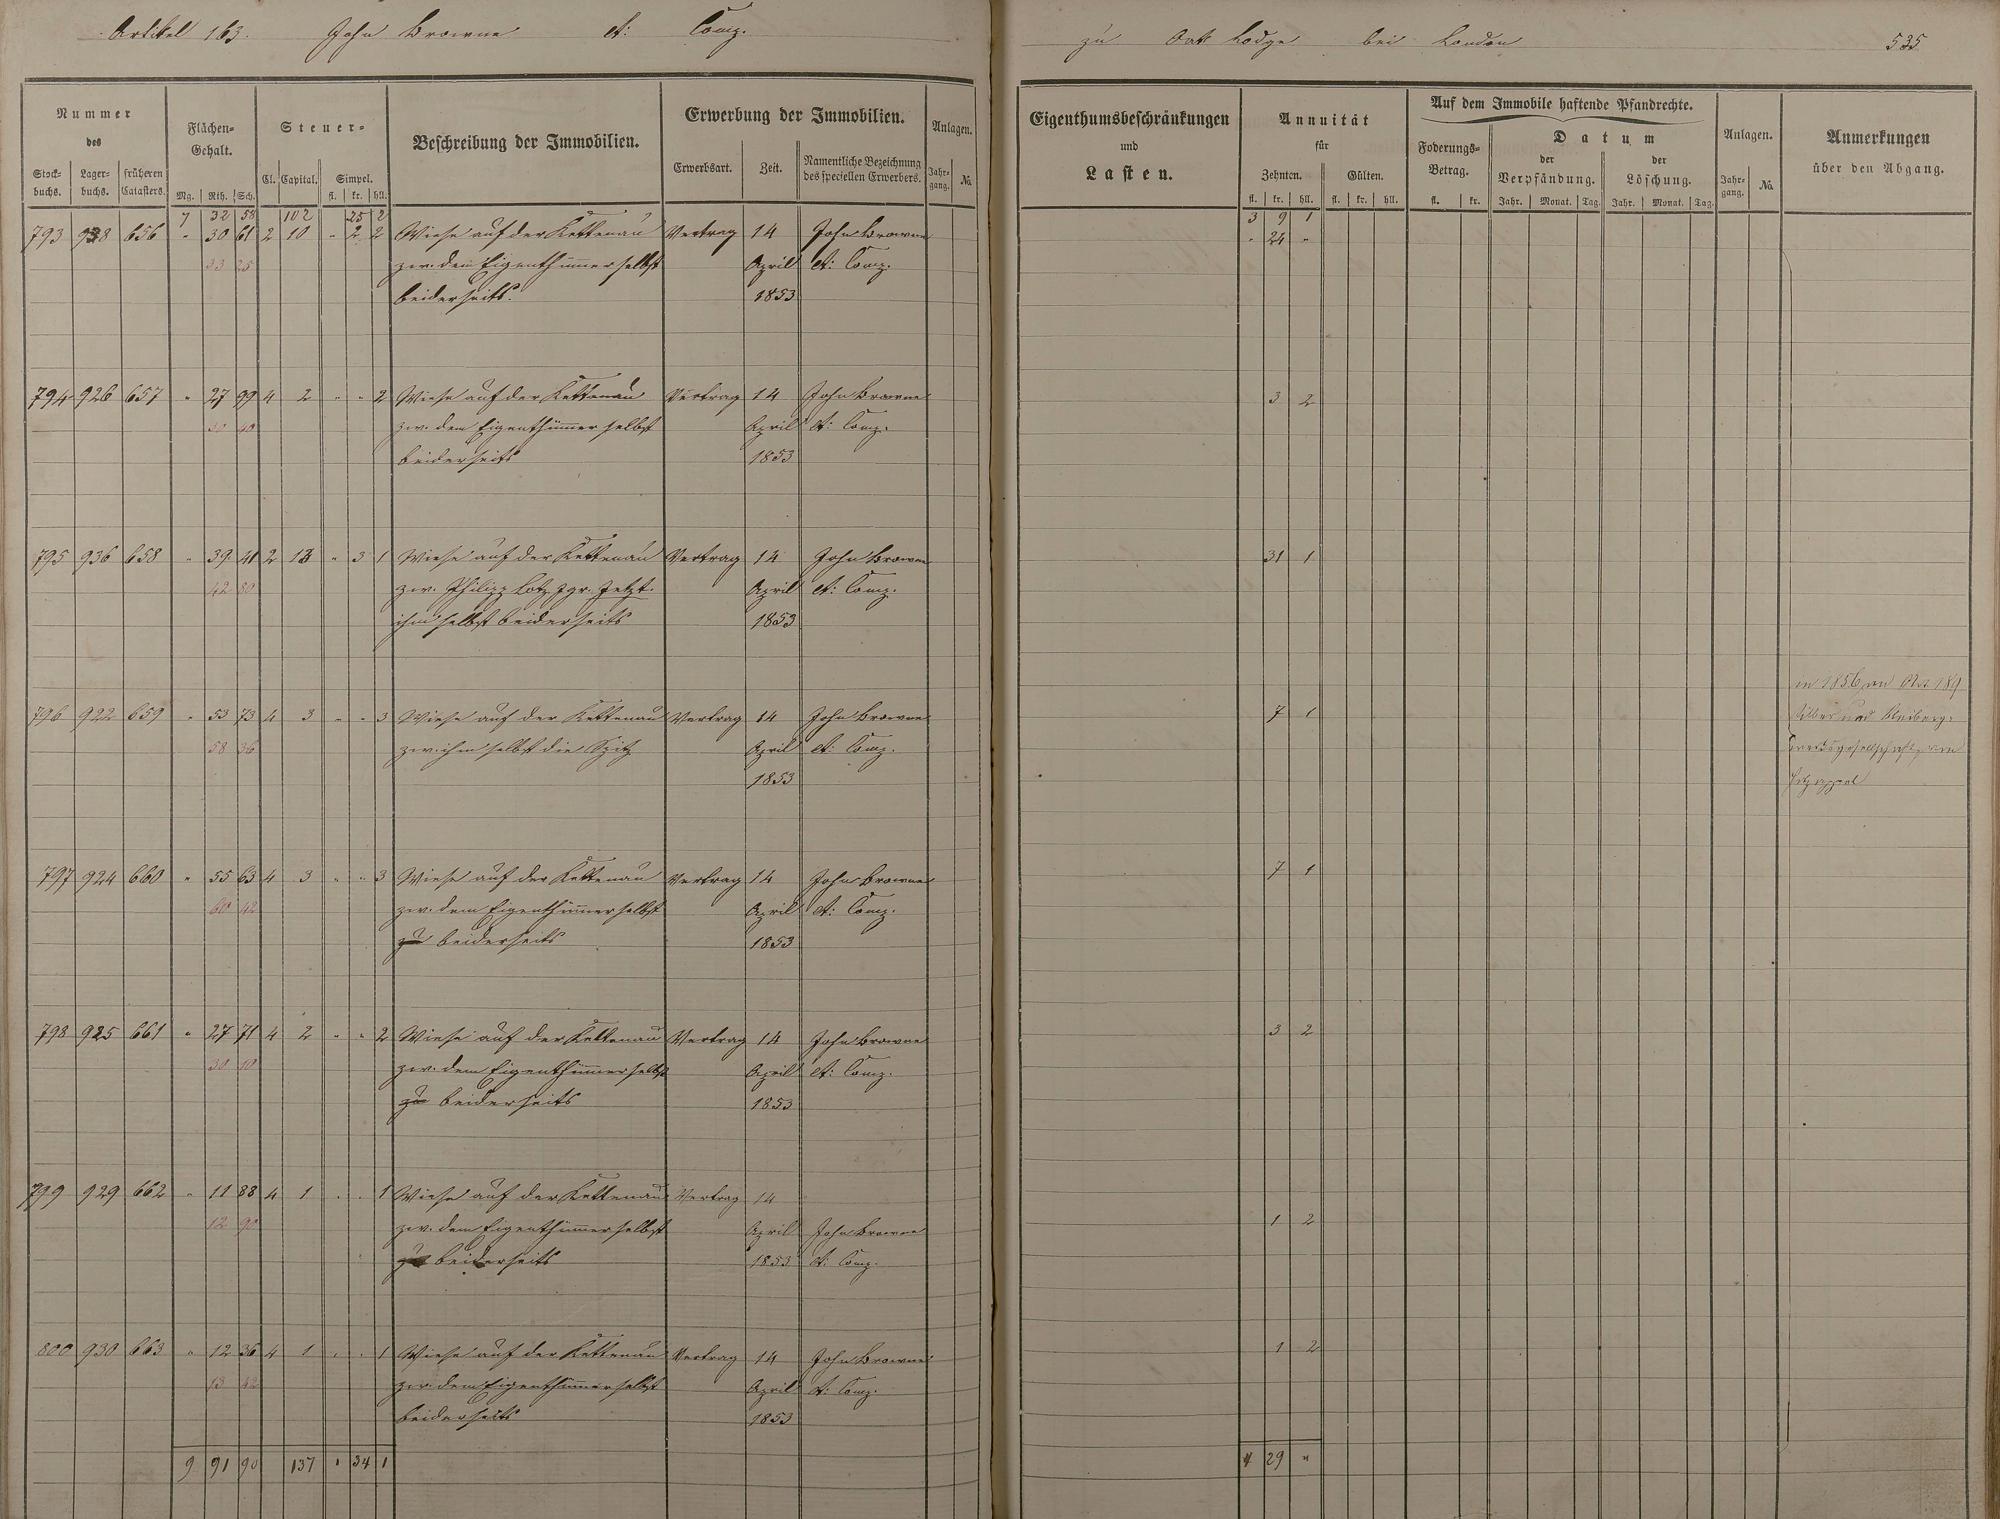 Artikel 163. John Browne et: Comp.
zu Oak Lodge bei London 535
Nummer des
Stock-buchs. Lager-buchs. früheren Catasters.
Flächen-Gehalt.
Mg. Rth. Sch.
Steuer-
Cl. Capital. Simpel.
fl. kr. hll.
Beschreibung der Immobilien.
Erwerbung der Immobilien.
Erwerbsart. Zeit. Namentliche Bezeichnung des speciellen Erwerbers.
Anlagen.
Jahr-gang. No.
Eigenthumsbeschränkungen
und
Lasten.
Annuität
für
Zehnten. Gülten.
fl. kr. hll. fl. kr. hll.
Auf dem Immobile haftende Pfandrechte.
Foderungs-Betrag.
fl. kr.
Datum
der Verpfändung. der Löschung.
Jahr. Monat. Tag. Jahr. Monat. Tag.
Anlagen.
Jahr-gang. No.
Anmerkungen
über den Abgang.
7 32 58 102 25 2 3 9 1
793 928 656 " 30 61 2 10 " 2 2 Wiese auf der Kettenau Vertrag 14 John Browne " 24 "
33 25 zw. dem Eigenthümer selbst April et: Comp.
beiderseits. 1853
794 926 657 " 27 99 4 2 " " 2 Wiese auf der Kettenau Vertrag 14 John Browne 3 2
30 40 zw. dem Eigenthümer selbst April et: Comp.
beiderseits 1853
795 936 658 " 39 41 2 13 " 3 1 Wiese auf der Kettenau Vertrag 14 John Browne 31 1
42 80 zw. Philipp Lotz jgr. Jetzt.
April et: Comp.
ihm selbst beiderseits 1853
796 922 659 " 53 73 4 3 " " 3 Wiese auf der Kettenau Vertrag 14 John Browne 7 1
58 36 zw. ihm selbst die Spitz April et: Comp.
1853
in 1856 an Art. 189
Silber und Bleiberg-
werksgesellschaft von
Holzappel
797 924 660 " 55 63 4 3 " " 3 Wiese auf der Kettenau Vertrag 14 John Browne 7 1
60 42 zw. dem Eigenthümer selbst April et: Comp.
zu beiderseits 1853
798 925 661 " 27 71 4 2 " " 2 Wiese auf der Kettenau Vertrag 14 John Browne 3 2
30 10 zw. dem Eigenthümer selbst April et: Comp.
zu beiderseits 1853
799 929 662 " 11 88 4 1 " " 1 Wiese auf der Kettenau Vertrag 14
12 90 zw. dem Eigenthümer selbst April John Browne 1 2
zu beiderseits 1853 et: Comp.
800 930 663 " 12 36 4 1 " " 1 Wiese auf der Kettenau Vertrag 14 John Browne 1 2
13 42 zw. dem Eigenthümer selbst April et: Comp.
beiderseits 1853
9 91 90 137 " 34 1 4 29 "